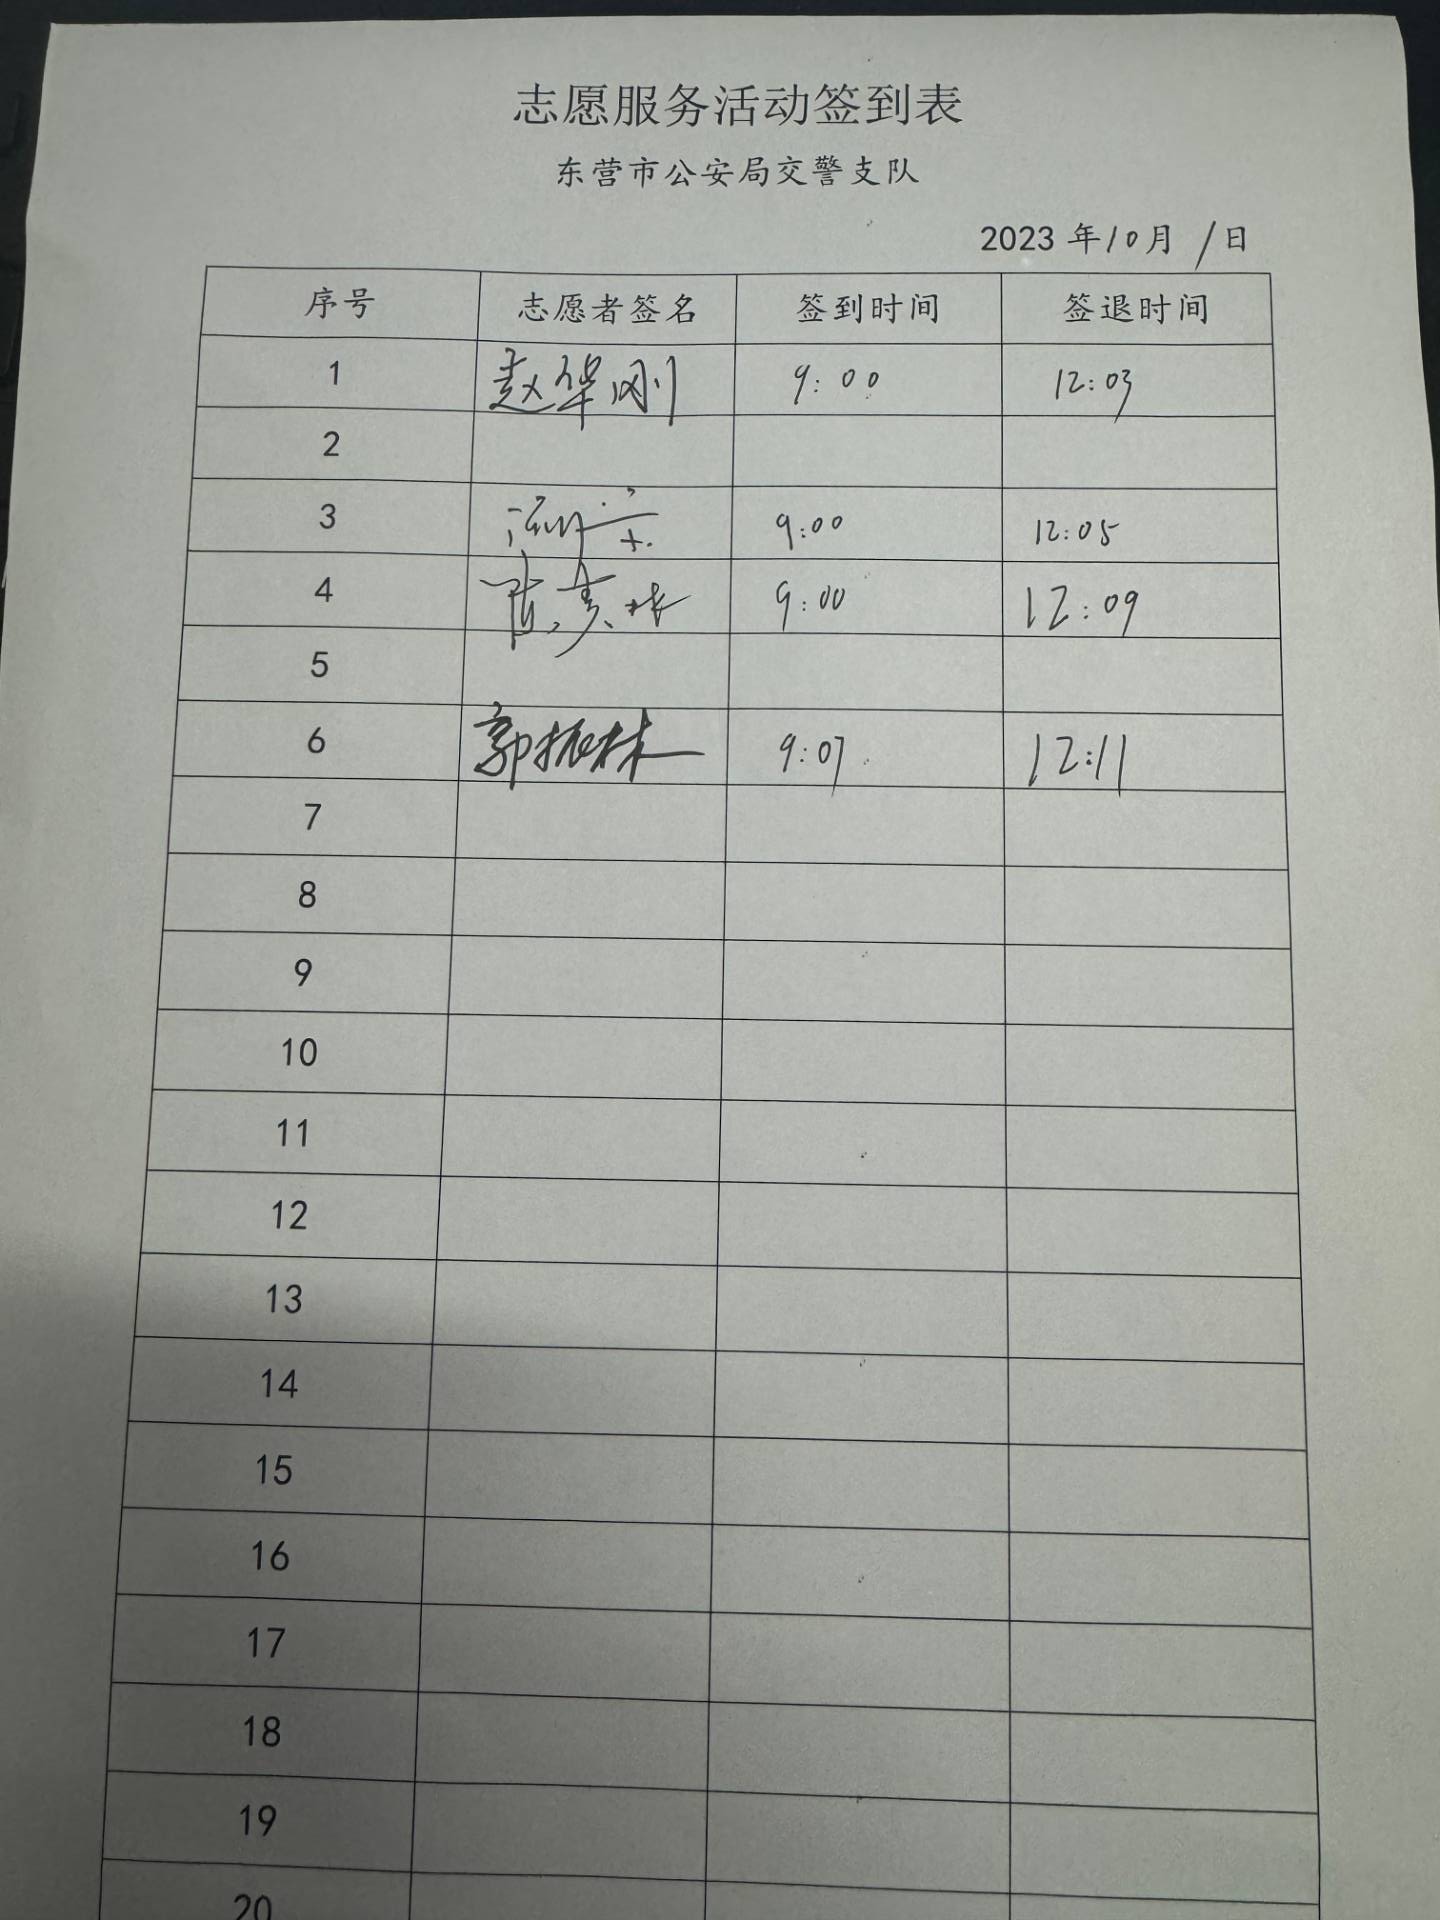 志愿服务活动签到表
东营市公安局交警支队
2023 年10月 1日
序号 志愿者签名 签到时间 签退时间
1 赵华刚 9:00 12:03
2
3 9:00 12:05
4 9:00 12:09
5
6 郭振林 9:07 12:11
7
8
9
10
11
12
13
14
15
16
17
18
19
20